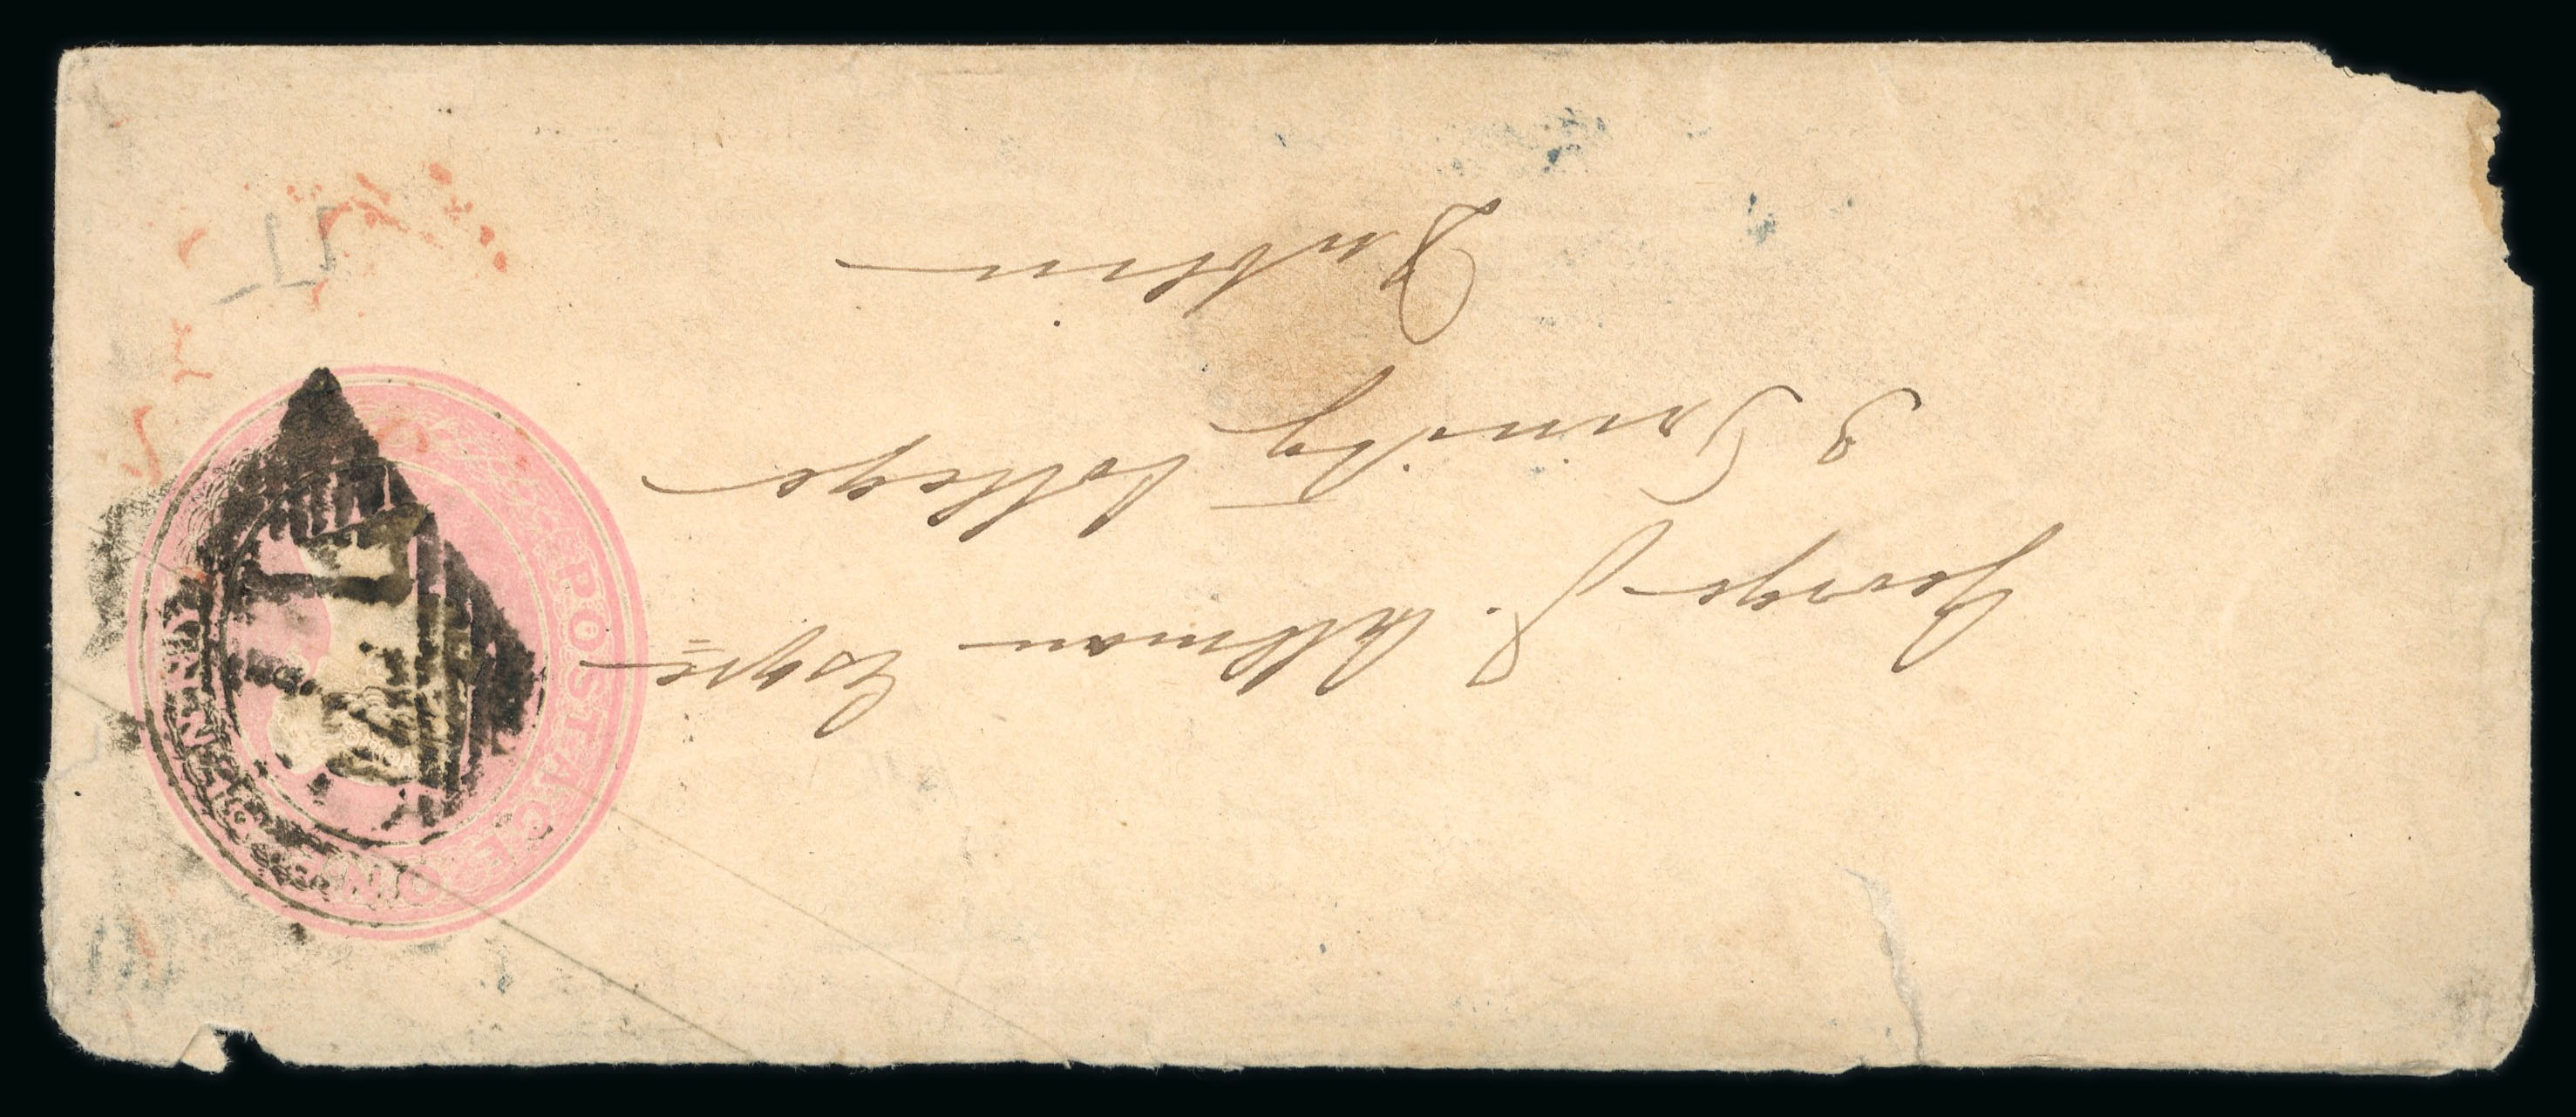 George J. Allman Esqre
3 Trinity College
Dublin
POSTAGE ONE PENNY